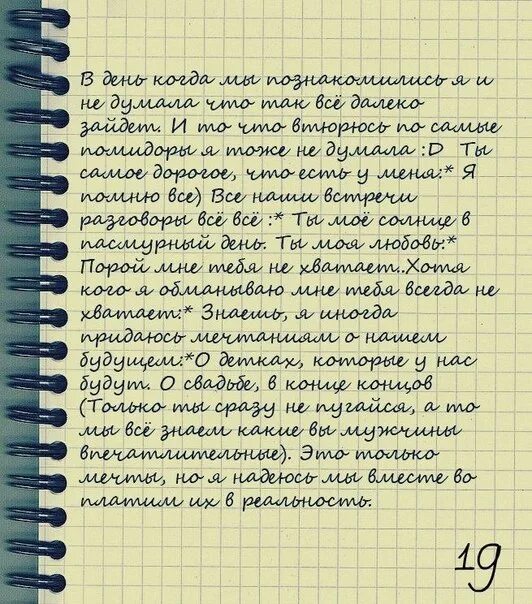 В день когда мы познакомились я и
не думала что так всё далеко
зайдет. И то что втюрюсь по самые
помидоры я тоже не думала :D Ты
самое дорогое, что есть у меня:* Я
помню все) Все наши встречи
разговоры всё всё :* Ты моё солнце в
пасмурный день. Ты моя любовь:*
Порой мне тебя не хватает..Хотя
кого я обманываю мне тебя всегда не
хватает:* Знаешь, я иногда
придаюсь мечтаниям о нашем
будущем:*О детках, которые у нас
будут. О свадьбе, в конце концов
(Только ты сразу не пугайся, а то
мы всё знаем какие вы мужчины
впечатлительные). Это только
мечты, но я надеюсь мы вместе во
платим их в реальность.
19